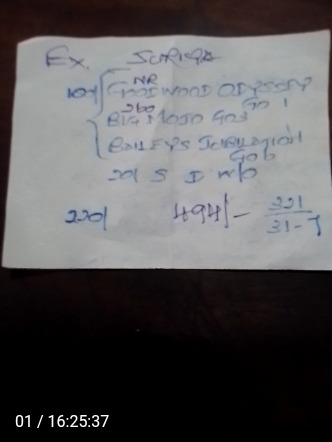 Ex. SURIYA
NR
10/ GOODWOOD ODYSSEY
GO 1
260
BIG MOJO GO3
BAILEYS JUBILATION
GO 6
20/ S D W/O
220/ 494/- 321
31-7
01 / 16:25:37